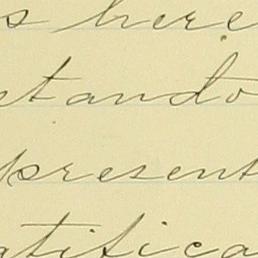 s here
tando
present
atifica